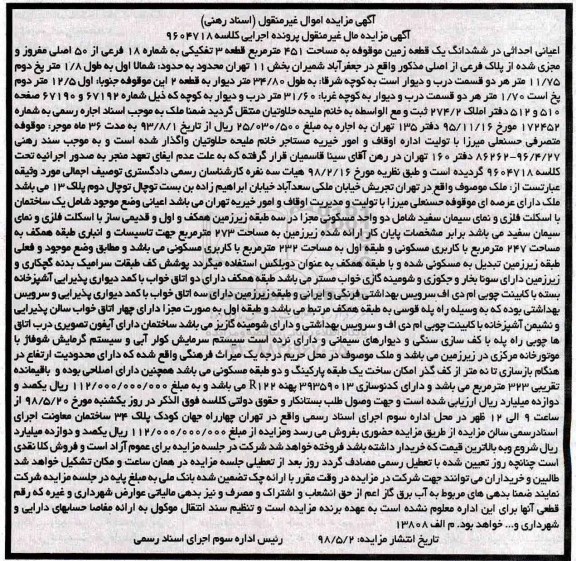 آگهی مزایده اموال غیرمنقول (اسناد رهنی)
آگهی مزایده مال غیرمنقول پرونده اجرایی کلاسه ۹۶۰۴۷۱۸
اعیانی احداثی در ششدانگ یک قطعه زمین موقوفه به مساحت ۴۵۱ مترمربع قطعه ۳ تفکیکی به شماره ۱۸ فرعی از ۵۰ اصلی مفروز و
مجزی شده از پلاک فرعی از اصلی مذکور واقع در جعفرآباد شمیران بخش ۱۱ تهران محدود به حدود: شمالا اول به طول ۱/۸ متر پخ دوم
۱۱/۷۵ متر هر دو قسمت درب و دیوار است به کوچه شرقا: به طول ۳۴/۸۰ متر دیوار به قطعه ۲ این موقوفه جنوبا: اول ۱۲/۵ متر دوم
پخ است ۱/۷۰ متر هر دو قسمت درب و دیوار به کوچه غربا: ۳۱/۶۰ متر درب و دیوار به کوچه که ذیل شماره ۶۷۱۹۲ و ۶۷۱۹۰ صفحه
۵۱۰ و ۵۱۲ دفتر املاک ۲۷۴/۲ ثبت و مع الواسطه به خانم ملیحه حلاوتیان منتقل گردید ضمنا ملک به موجب اسناد اجاره رسمی به شماره
۱۷۲۴۵۲ مورخ ۹۵/۱۱/۱۶ دفتر ۱۳۵ تهران به اجاره به مبلغ ۲۵/۰۳۰/۵۰۰ ریال از تاریخ ۹۳/۸/۱ به مدت ۳۶ ماه موجر: موقوفه
متصرفی حسنعلی میرزا با تولیت اداره اوقاف و امور خیریه مستاجر خانم ملیحه حلاوتیان واگذار شده است و به موجب سند رهنی
۸۶۲۶۲-۹۶/۴/۲۷ دفتر ۱۶۰ تهران در رهن آقای سینا قاسمیان قرار گرفته که به علت عدم ایفای تعهد منجر به صدور اجرائیه تحت
کلاسه ۹۶۰۴۷۱۸ گردیده است و طبق نظریه مورخ ۹۸/۲/۱۶ هیات سه نفره کارشناسان رسمی دادگستری توصیف اجمالی مورد وثیقه
عبارتست از: ملک موصوف واقع در تهران تجریش خیابان ملکی سعدآباد خیابان ابراهیم زاده بن بست توچال توچال دوم پلاک ۱۳ می باشد
ملک دارای عرصه ای موقوفه حسنعلی میرزا با تولیت و مدیریت اوقاف و امور خیریه تهران می باشد اعیانی وضع موجود شامل یک ساختمان
با اسکلت فلزی و نمای سیمان سفید شامل دو واحد مسکونی مجزا در سه طبقه زیرزمین همکف و اول و قدیمی ساز با اسکلت فلزی و نمای
سیمان سفید می باشد برابر مشخصات پایان کار ارائه شده زیرزمین به مساحت ۲۷۳ مترمربع جهت تاسیسات و انباری طبقه همکف به
مساحت ۲۴۷ مترمربع با کاربری مسکونی و طبقه اول به مساحت ۲۳۲ مترمربع با کاربری مسکونی می باشد و مطابق وضع موجود و فعلی
طبقه زیرزمین تبدیل به مسکونی شده و با طبقه همکف به عنوان دوبلکس استفاده میگردد پوشش کف طبقات سرامیک بدنه گچکاری و
زیرزمین دارای سونا بخار و جکوزی و شومینه گازی خواب مستر می باشد طبقه همکف دارای دو اتاق خواب با کمد دیواری پذیرایی آشپزخانه
بسته با کابینت چوبی ام دی اف سرویس بهداشتی فرنگی و ایرانی و طبقه زیرزمین دارای سه اتاق خواب با کمد دیواری پذیرایی و سرویس
بهداشتی بوده که به وسیله راه پله قوسی به طبقه همکف مرتبط می باشد و طبقه اول به صورت مجزا دارای چهار اتاق خواب سالن پذیرایی
و نشیمن آشپزخانه با کابینت چوبی ام دی اف و سرویس بهداشتی و دارای شومینه گازیز می باشد ساختمان دارای آیفون تصویری درب اتاق
ها چوبی راه پله با کف سازی سنگی و دیوارهای سیمانی و دارای نرده است سیستم سرمایش کولر آبی و سیستم گرمایش شوفاژ با
موتورخانه مرکزی در زیرزمین می باشد و ملک موصوف در محل حریم درجه یک میراث فرهنگی واقع شده که دارای محدودیت ارتفاع در
هنگام بازسازی تا نه متر از کف گذر امکان ساخت یک طبقه پارکینگ و دو طبقه مسکونی می باشد همچنین دارای اصلاحی بوده و باقیمانده
تقریبی ۳۲۳ مترمربع می باشد و دارای کدنوسازی ۳۹۳۵۹۰۱۳ پهنه R۱۲۲ می باشد و به مبلغ ۱۱۲/۰۰۰/۰۰۰/۰۰۰ ریال یکصد و
دوازده میلیارد ریال ارزیابی شده است و جهت وصول طلب بستانکار و حقوق دولتی کلاسه فوق الذکر در روز یکشنبه مورخ ۹۸/۵/۲۰ از
ساعت ۹ الی ۱۲ ظهر در محل اداره سوم اجرای اسناد رسمی واقع در تهران چهارراه جهان کودک پلاک ۳۴ ساختمان معاونت اجرای
اسنادرسمی سالن مزایده از طریق مزایده حضوری بفروش می رسد ومزایده از مبلغ ۱۱۲/۰۰۰/۰۰۰/۰۰۰ ریال یکصد و دوازده میلیارد
ریال شروع وبه بالاترین قیمت که خریدار داشته باشد فروخته خواهد شد شرکت در جلسه مزایده برای عموم آزاد است و فروش کلا نقدی
است چنانچه روز تعیین شده با تعطیل رسمی مصادف گردد روز بعد از تعطیلی جلسه مزایده در همان ساعت و مکان تشکیل خواهد شد
طالبین و خریداران می توانند جهت شرکت در مزایده در وقت مقرر با ارائه چک تضمین شده بانک ملی به مبلغ پایه در جلسه مزایده شرکت
نمایند ضمنا بدهی های مربوط به آب برق گاز اعم از حق انشعاب و اشتراک و مصرف و نیز بدهی مالیاتی عوارض شهرداری و غیره که رقم
قطعی آنها برای این اداره معلوم نشده است به عهده برنده مزایده است و تنظیم سند انتقال موکول به ارائه مفاصا حسابهای دارایی و
شهرداری و... خواهد بود. م الف ۱۳۸۰۸
تاریخ انتشار مزایده: ۹۸/۵/۲ رئیس اداره سوم اجرای اسناد رسمی